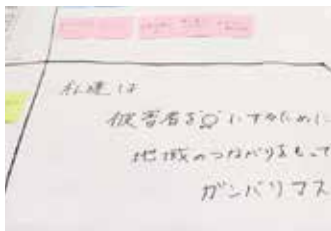 私達は
被害者を"0"にするために
地域のつながりをもって
ガンバリマス